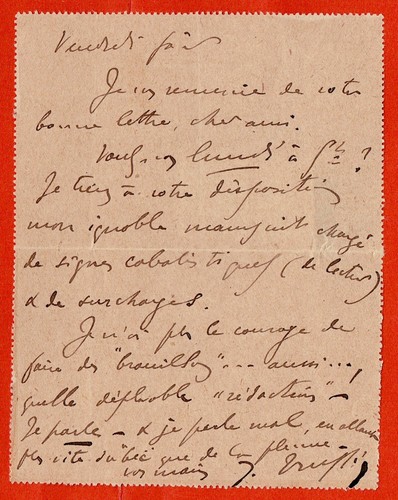 Vendredi soir
Je vous remercie de votre
bonne lettre, cher ami.
Voulez-vous lundi à 5h ?
Je tiens à votre disposition
mon ignoble manuscrit chargé
de signes cabalistiques (de lecture)
& de surcharges.
Je n'ai pas le courage de
faire des "brouillons"... aussi...,
quelle déplorable "rédaction" —
Je parle — & je parle mal, en allant
plus vite que de la plume —
vos mains